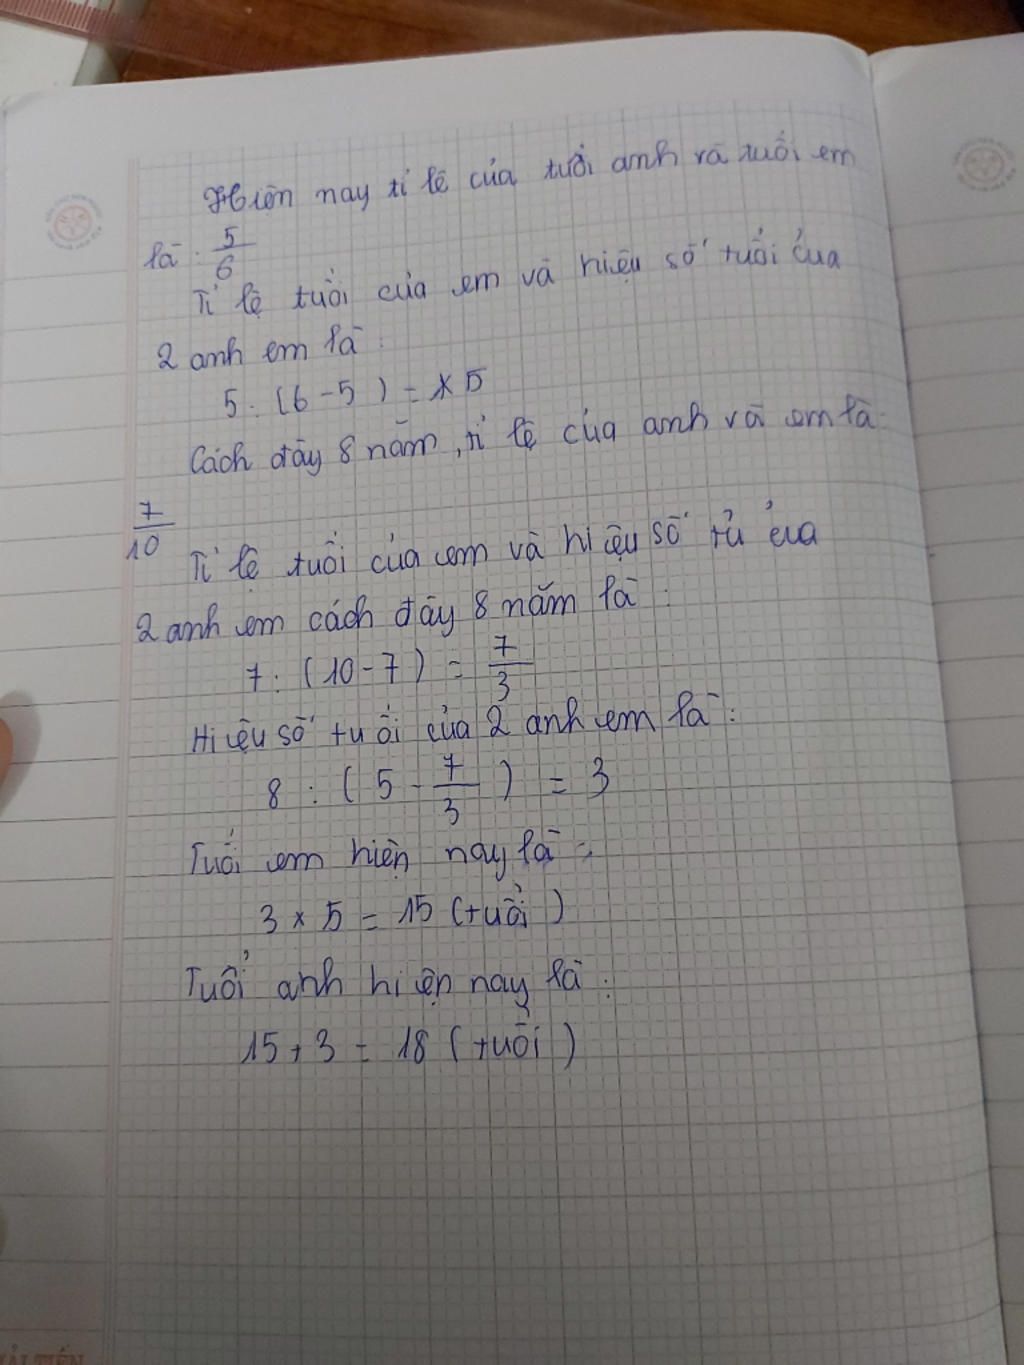 Hiện nay tỉ lệ của tuổi anh và tuổi em
là : 5/6
Tỉ lệ tuổi của em và hiệu số tuổi của
2 anh em là :
5 : (6 - 5) = 5
Cách đây 8 năm, tỉ lệ của anh và em là :
7/10
Tỉ lệ tuổi của em và hiệu số tủ của
2 anh em cách đây 8 năm là :
7 : (10 - 7) = 7/3
Hiệu số tuổi của 2 anh em là :
8 : (5 - 7/3) = 3
Tuổi em hiện nay là :
3 x 5 = 15 (tuổi)
Tuổi anh hiện nay là :
15 + 3 = 18 (tuổi)
HẢI TIẾN